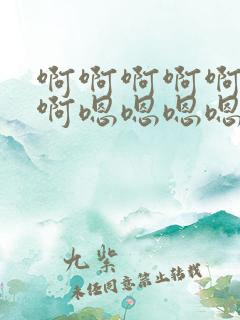 啊啊啊啊啊
啊嗯嗯嗯嗯
九柴
未经同意禁止转载